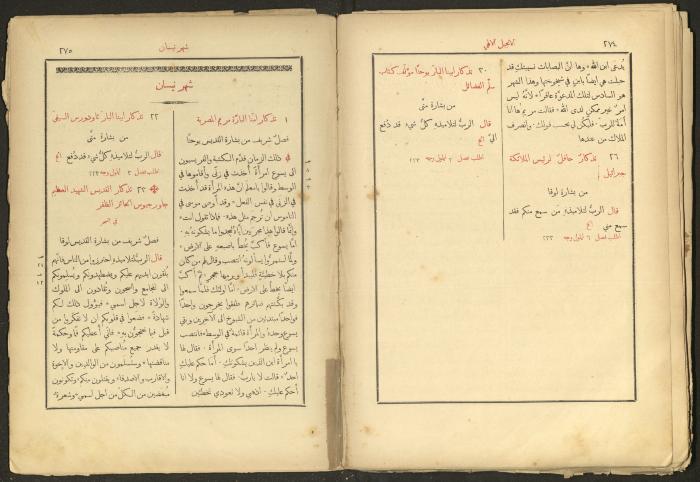 ٢٧٤
الانجيل الالهي
يُدعَى ابن الله* وها انَّ اليصابات نسيبتكِ قد
حبلت هي ايضًا بابنٍ في شيخوختها وهذا الشهر
هو السادس لتلك المدعوَّة عاقرًا* لانهُ ليس
امرٌ غير ممكنٍ لدى الله* فقالت مريم ها انا
أَمَةٌ للرب. فليكن لي بحسب قولك. وانصرف
الملاك من عندها
٢٦ تذكارٌ حافلٌ لرئيس الملائكة
جبرائيل
من بشارة لوقا
قال الربُّ لتلاميذهِ مَن سمع منكم فقد
سمع مني الخ
اطلب فصل ٦ ايلول وجه ٢٢٣
٣٠ تذكار ابينا البارّ يوحنا مؤلّف كتاب
سلَّم الفضائل
من بشارة متى
قال الربُّ لتلاميذهِ كلُّ شيءٍ قد دُفع
اليَّ الخ
اطلب فصل ٣ ايلول وجه
شهر نيسان
٢٧٥
شهر نيسان
١ تذكار امنا البارَّة مريم المصرية
فصلٌ شريف من بشارة القديس يوحنا
في ذلك الزمان قدَّم الكتبة والفريسيون
الى يسوع امرأةً أُخذت في زنًى وأَقاموها في
الوسط وقالوا يا معلّم انَّ هذه المرأة قد أُخذت
في الزنى في نفس الفعل* وقد أَوصى موسى في
الناموس ان تُرجم مثل هذه. فماذا تقول انت*
وانَّما قالوا هذا مجرّبين ايَّاهُ ليجدوا ما يشكونهُ بهِ.
امَّا يسوع فأكبَّ يخطُّ باصبعهِ على الارض*
ولمَّا استمرُّوا يسألونهُ انتصب وقال لهم من كان
منكم بلا خطيئةٍ فليبدأ ويرمها بحجر* ثمَّ أكبَّ
ايضًا يخطُّ على الارض* امَّا اولئك فلمَّا سمعوا
وقد بكَّتتهم ضمائرهم طفقوا يخرجون واحدًا
فواحدًا مبتدئين من الشيوخ الى الآخرين وبقي
يسوع وحدهُ والمرأة قائمة في الوسط* فانتصب
يسوع ولم ينظر احدًا سوى المرأة. فقال لها
يا امرأة اين الذين يشكونكِ. أَمَا حكم عليكِ
احدٌ* قالت لا يا ربُّ. فقال لها يسوع ولا انا
أَحكم عليكِ. اذهبي ولا تعودي تخطئين
٢٢ تذكار ابينا البارّ ثاودورس السيقي
من بشارة متى
قال الربُّ لتلاميذهِ كلُّ شيءٍ قد دُفع الخ
اطلب فصل ٣ ايلول وجه
٢٣ تذكار القديس الشهيد العظيم
جاورجيوس الحائز الظفر
في السحر
فصلٌ شريف من بشارة القديس لوقا
قال الربُّ لتلاميذهِ احترزوا من الناس فانهم
يُلقون ايديهم عليكم ويضطهدونكم ويُسلمونكم
الى المجامع والسجون وتُقادون الى الملوك
والولاة لاجل اسمي* فيؤول ذلك لكم
شهادةً* فضعوا في قلوبكم ان لا تفكّروا من
قبل فيما تحتجُّون بهِ* فاني أُعطيكم فمًا وحكمةً
لا يقدر جميع مناصبيكم على مقاومتها ولا
مناقضتها* وستُسلَمون من الوالدين والاخوة
والاقارب والاصدقاء ويقتلون منكم* وتكونون
مبغضين من الكلّ من اجل اسمي* وشعرة*